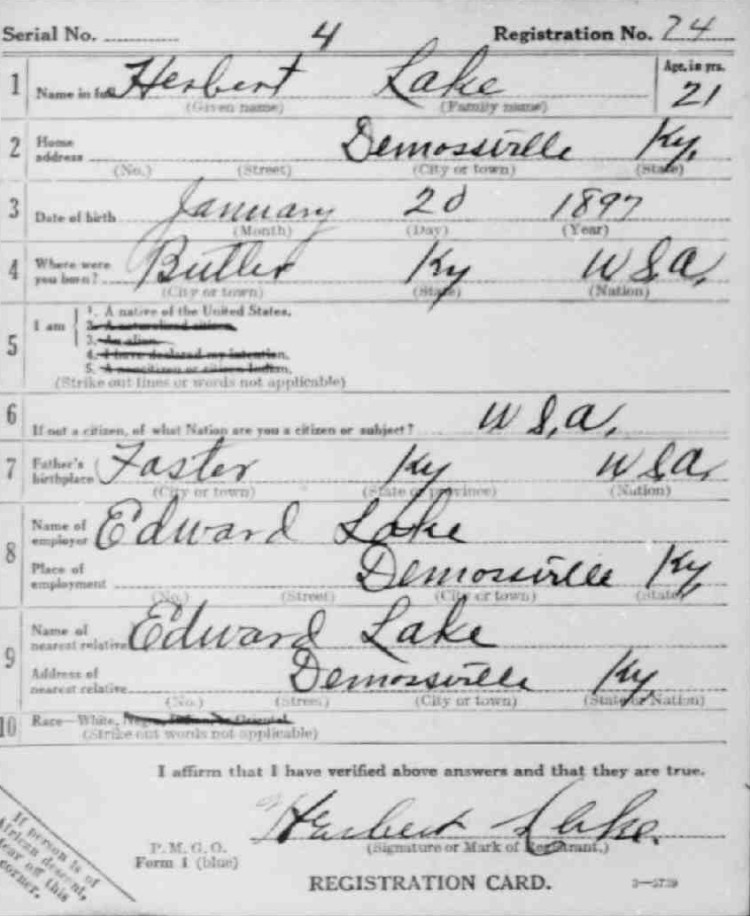 Serial No. 4 Registration No. 74
1 Name in full Herbert Lake Age, in yrs. 21
(Given name) (Family name)
2 Home address Demossville Ky.
(No.) (Street) (City or town) (State)
3 Date of birth January 20 1897
(Month) (Day) (Year)
4 Where were you born? Butler Ky U.S.a.
(City or town) (State) (Nation)
5 I am
1. A native of the United States.
2. A naturalized citizen.
3. An alien.
4. I have declared my intention.
5. A noncitizen or citizen Indian.
(Strike out lines or words not applicable)
6 If not a citizen, of what Nation are you a citizen or subject? U.S.a.
7 Father's birthplace Foster Ky U.S.a.
(City or town) (State or province) (Nation)
8 Name of employer Edward Lake
Place of employment Demossville Ky
(No.) (Street) (City or town) (State)
9 Name of nearest relative Edward Lake
Address of nearest relative Demossville Ky
(No.) (Street) (City or town) (State or Nation)
10 Race—White, Negro, Indian, or Oriental
(Strike out words not applicable)
I affirm that I have verified above answers and that they are true.
Herbert Lake.
P. M. G. O.
Form 1 (blue)
(Signature or Mark of Registrant.)
REGISTRATION CARD.
If person is of
African descent,
tear off this
corner.